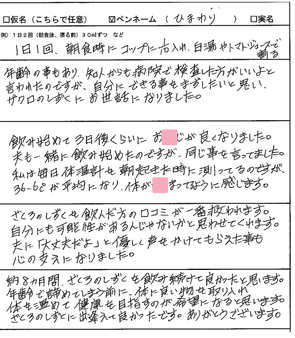 □仮名(こちらで任意) ☑ペンネーム(ひまわり) □実名
例)1日2回(朝食後、寝る前)30mlずつ など
1日1回、朝食時にコップに 入れ、白湯やトマトジュースで割る
年齢の事もあり、知人からも病院で検査した方がいいよと
言われたのですが、自分にできる事をまずしたいと思い、
ザクロのしずくにお世話になりました。
飲み始めて3日後くらいにお じが良くなりました。
夫も一緒に飲み始めたのですが、同じ事を言ってました。
私は毎日体温計を朝定また時に測ってるのですが、
36.6℃が平均になり、体が まってるように感じます。
ざくろのしずくを飲んだ方の口コミが一番救われます。
自分にも可能性があるんじゃないかと思わせてくれます。
夫に「大丈夫だよ」と優しく声をかけてもらえた事も
心の支えになりました。
約8カ月間、ざくろのしずくを飲み続けて良かったと思います。
年齢で諦めてしまう前に、体に良い物を取り入れ
体を温めて健康を目指すのが希望になると思います。
ざくろのしずくに出逢えて良かったです。ありがとうございます。